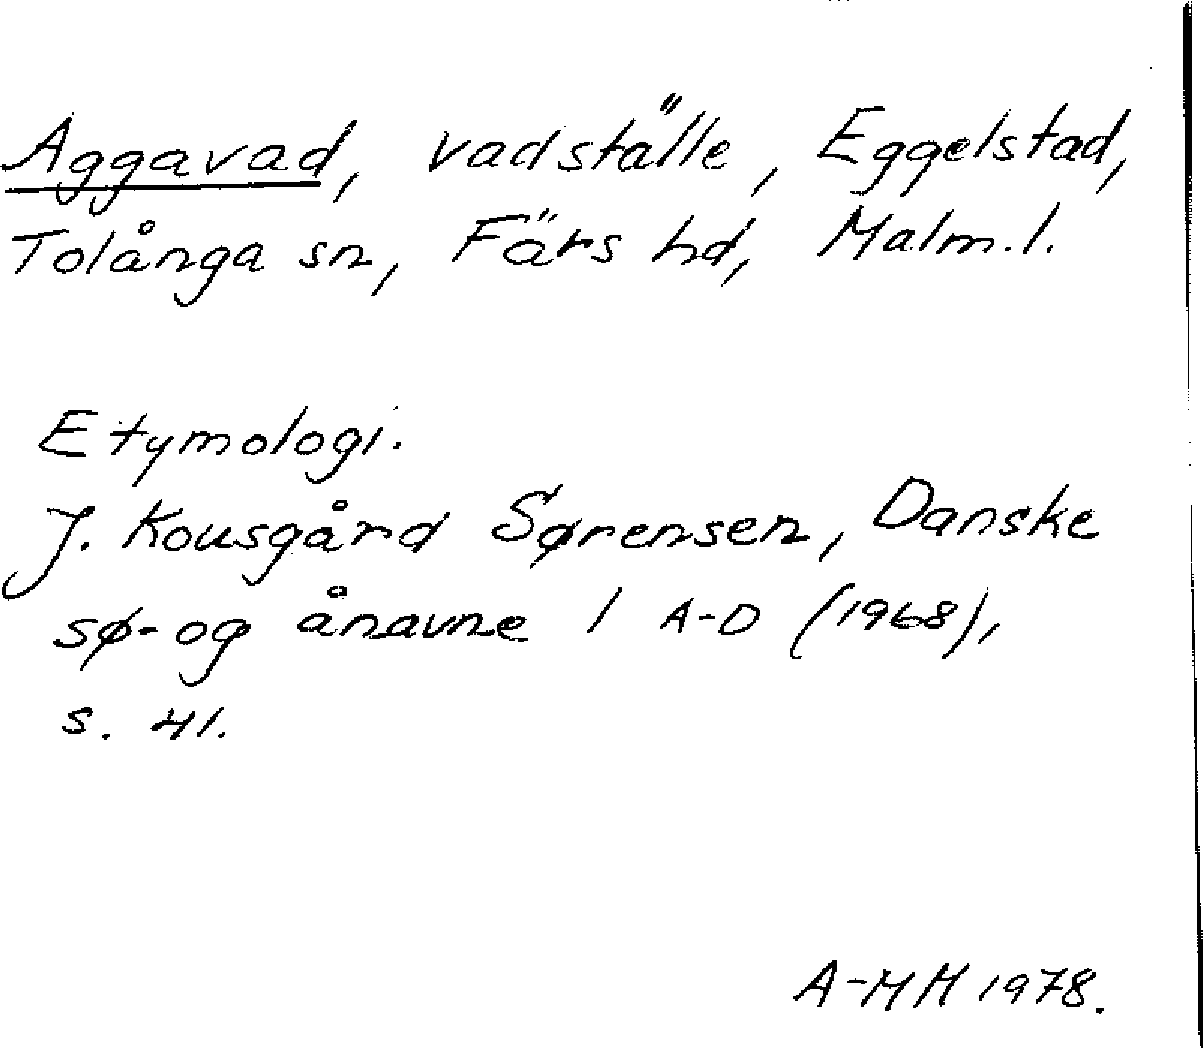 Aggavad, vadställe, Eggelstad,
Tolånga sn, Färs hd, Malm.l.
Etymologi.
J. Kousgård Sørensen, Danske
sø- og ånavne 1 A-D (1968),
s. 41.
A-MM 1978.